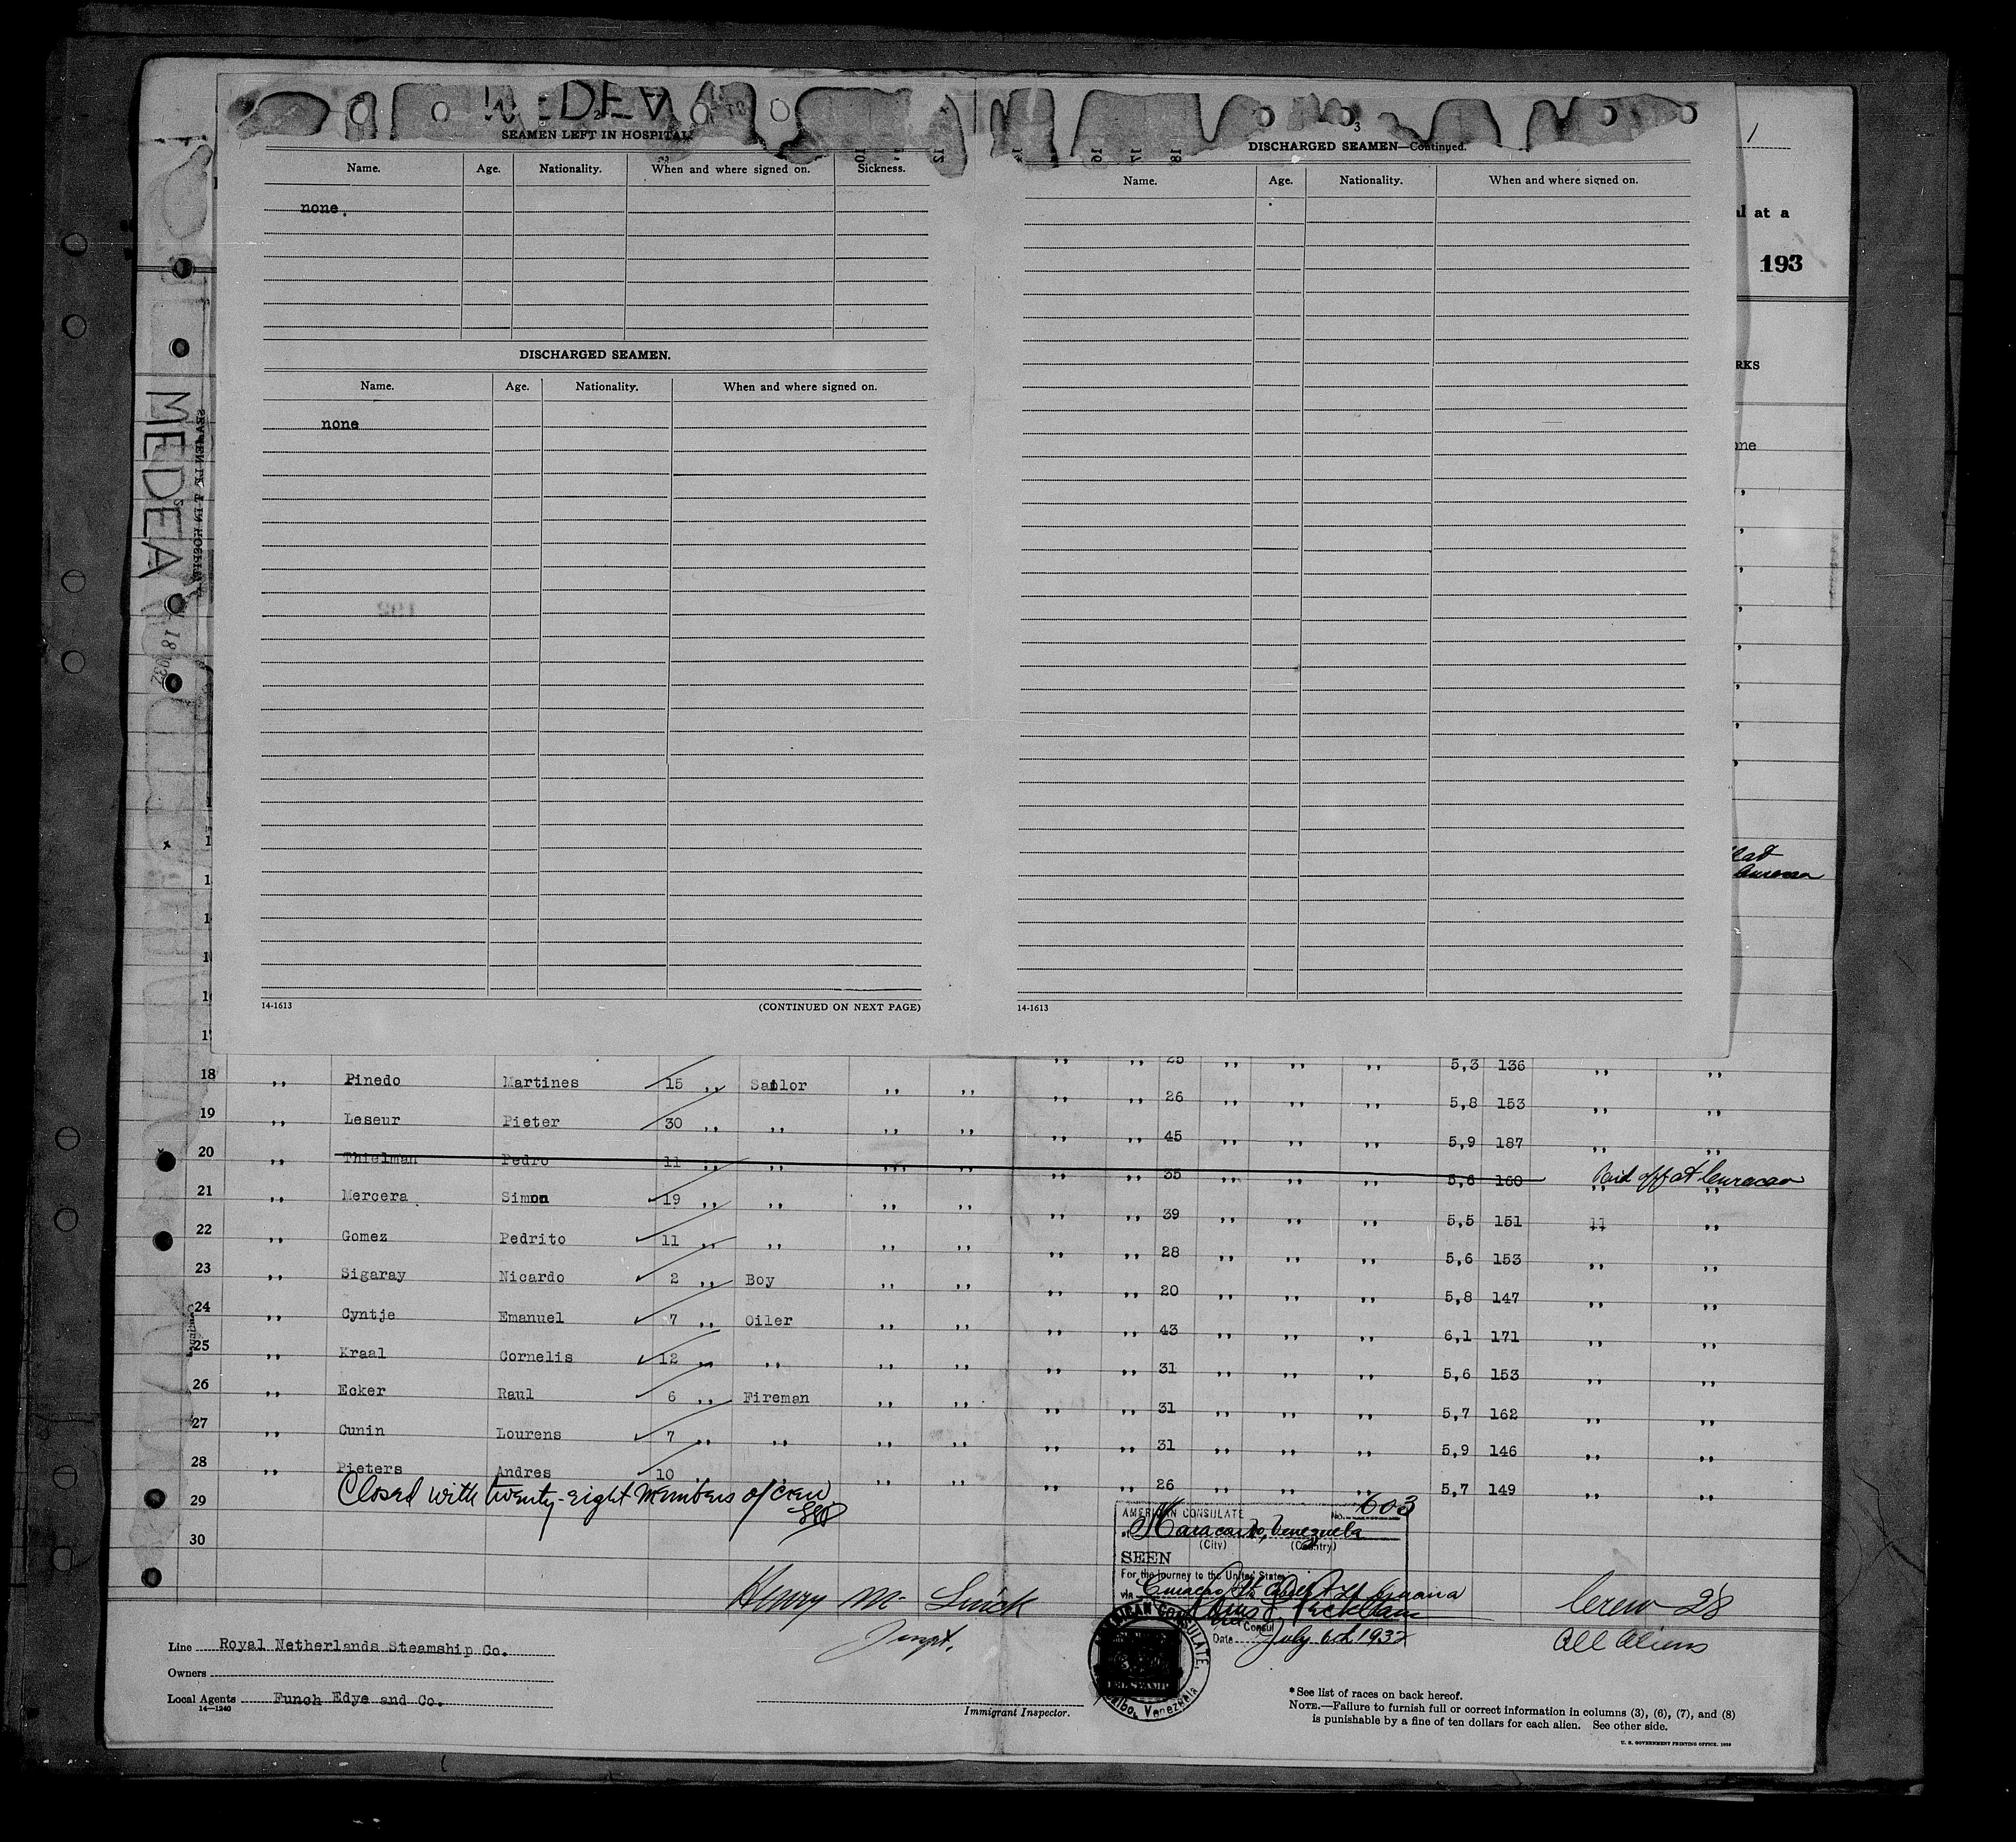 MEDEA
SEAMEN LEFT IN HOSPITAL
Name. Age. Nationality. When and where signed on. Sickness.
none.
DISCHARGED SEAMEN.
Name. Age. Nationality. When and where signed on.
none
14-1613 (CONTINUED ON NEXT PAGE)
3
DISCHARGED SEAMEN—Continued.
Name. Age. Nationality. When and where signed on.
14-1613
1
al at a
193
RKS
one
MEDEA
18 1932
,, 25 ,, ,, ,, 5,3 136 ,, ,,
18 ,, Pinedo Martines 15 ,, Sailor ,, ,, ,, ,, 26 ,, ,, ,, 5,8 153 ,, ,,
19 ,, Leseur Pieter 30 ,, ,, ,, ,, ,, ,, 45 ,, ,, ,, 5,9 187 ,, ,,
20 ,, Thielman Pedro 11 ,, ,, ,, ,, ,, ,, 35 ,, ,, ,, 5,6 160 Paid off at Curacao
21 ,, Mercera Simon 19 ,, ,, ,, ,, ,, ,, 39 ,, ,, ,, 5,5 151 ,, ,,
22 ,, Gomez Pedrito 11 ,, ,, ,, ,, ,, ,, 28 ,, ,, ,, 5,6 153 ,, ,,
23 ,, Sigaray Nicardo 2 ,, Boy ,, ,, ,, ,, 20 ,, ,, ,, 5,8 147 ,, ,,
24 ,, Cyntje Emanuel 7 ,, Oiler ,, ,, ,, ,, 43 ,, ,, ,, 6,1 171 ,, ,,
25 ,, Kraal Cornelis 12 ,, ,, ,, ,, ,, ,, 31 ,, ,, ,, 5,6 153 ,, ,,
26 ,, Ecker Raul 6 ,, Fireman ,, ,, ,, ,, 31 ,, ,, ,, 5,7 162 ,, ,,
27 ,, Cunin Lourens 7 ,, ,, ,, ,, ,, ,, 31 ,, ,, ,, 5,9 146 ,, ,,
28 ,, Pieters Andres 10 ,, ,, ,, ,, ,, ,, 26 ,, ,, ,, 5,7 149 ,, ,,
29 Closed with twenty-eight members of crew
30
AMERICAN CONSULATE No. 603
at Maracaibo, Venezuela
(City) (Country)
SEEN
For the journey to the United States
via Curacao
Consul
Date July 6th 1932
AMERICAN CONSULATE
Venezuela
Henry M. Linck
Inspt.
Immigrant Inspector.
Crew 28
All Aliens
Line Royal Netherlands Steamship Co.
Owners
Local Agents Funch Edye and Co.
14-1240
*See list of races on back hereof.
NOTE.—Failure to furnish full or correct information in columns (3), (6), (7), and (8)
is punishable by a fine of ten dollars for each alien. See other side.
U. S. GOVERNMENT PRINTING OFFICE. 1929